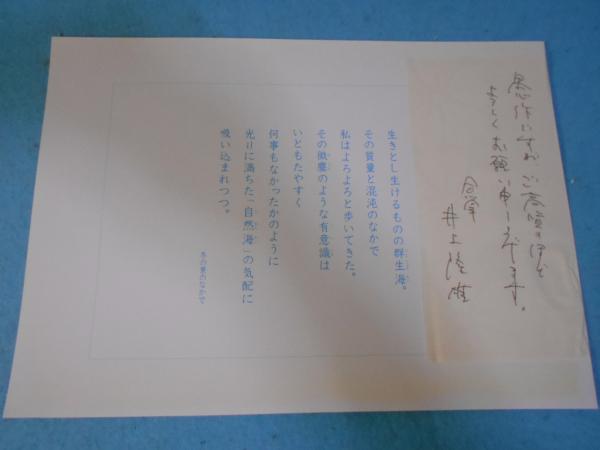 愚作ですが ご高覧のほど
よろしくお願い申し上げます。
合掌
井上隆雄
生きとし生けるものの群生海。
その質量と混沌のなかで
私はよろよろと歩いてきた。
その微塵のような有意識は
いともたやすく
何事もなかったかのように
光りに満ちた「自然海」の気配に
吸い込まれつつ。
冬の景のなかで